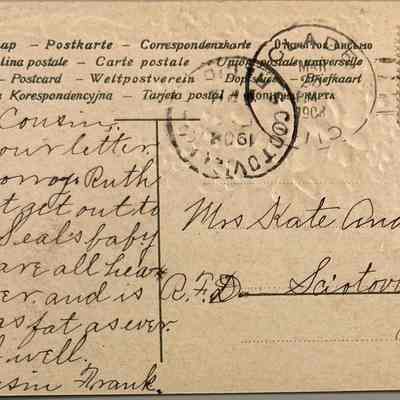 ap – Postkarte – Correspondenzkarte – Открытое письмо
lina postale – Carte postale – Union postale universelle
– Postcard – Weltpostverein – Dopisnice – Briefkaart
a Korespondencyjna – Tarjeta postal –
1908
1908
Cousin,
our letter
Ruth
t get out to
Seals baby
are all hea
er. and is
as fat as ever.
well.
sin Frank.
Mrs Kate And
R.F.D. Sciotov